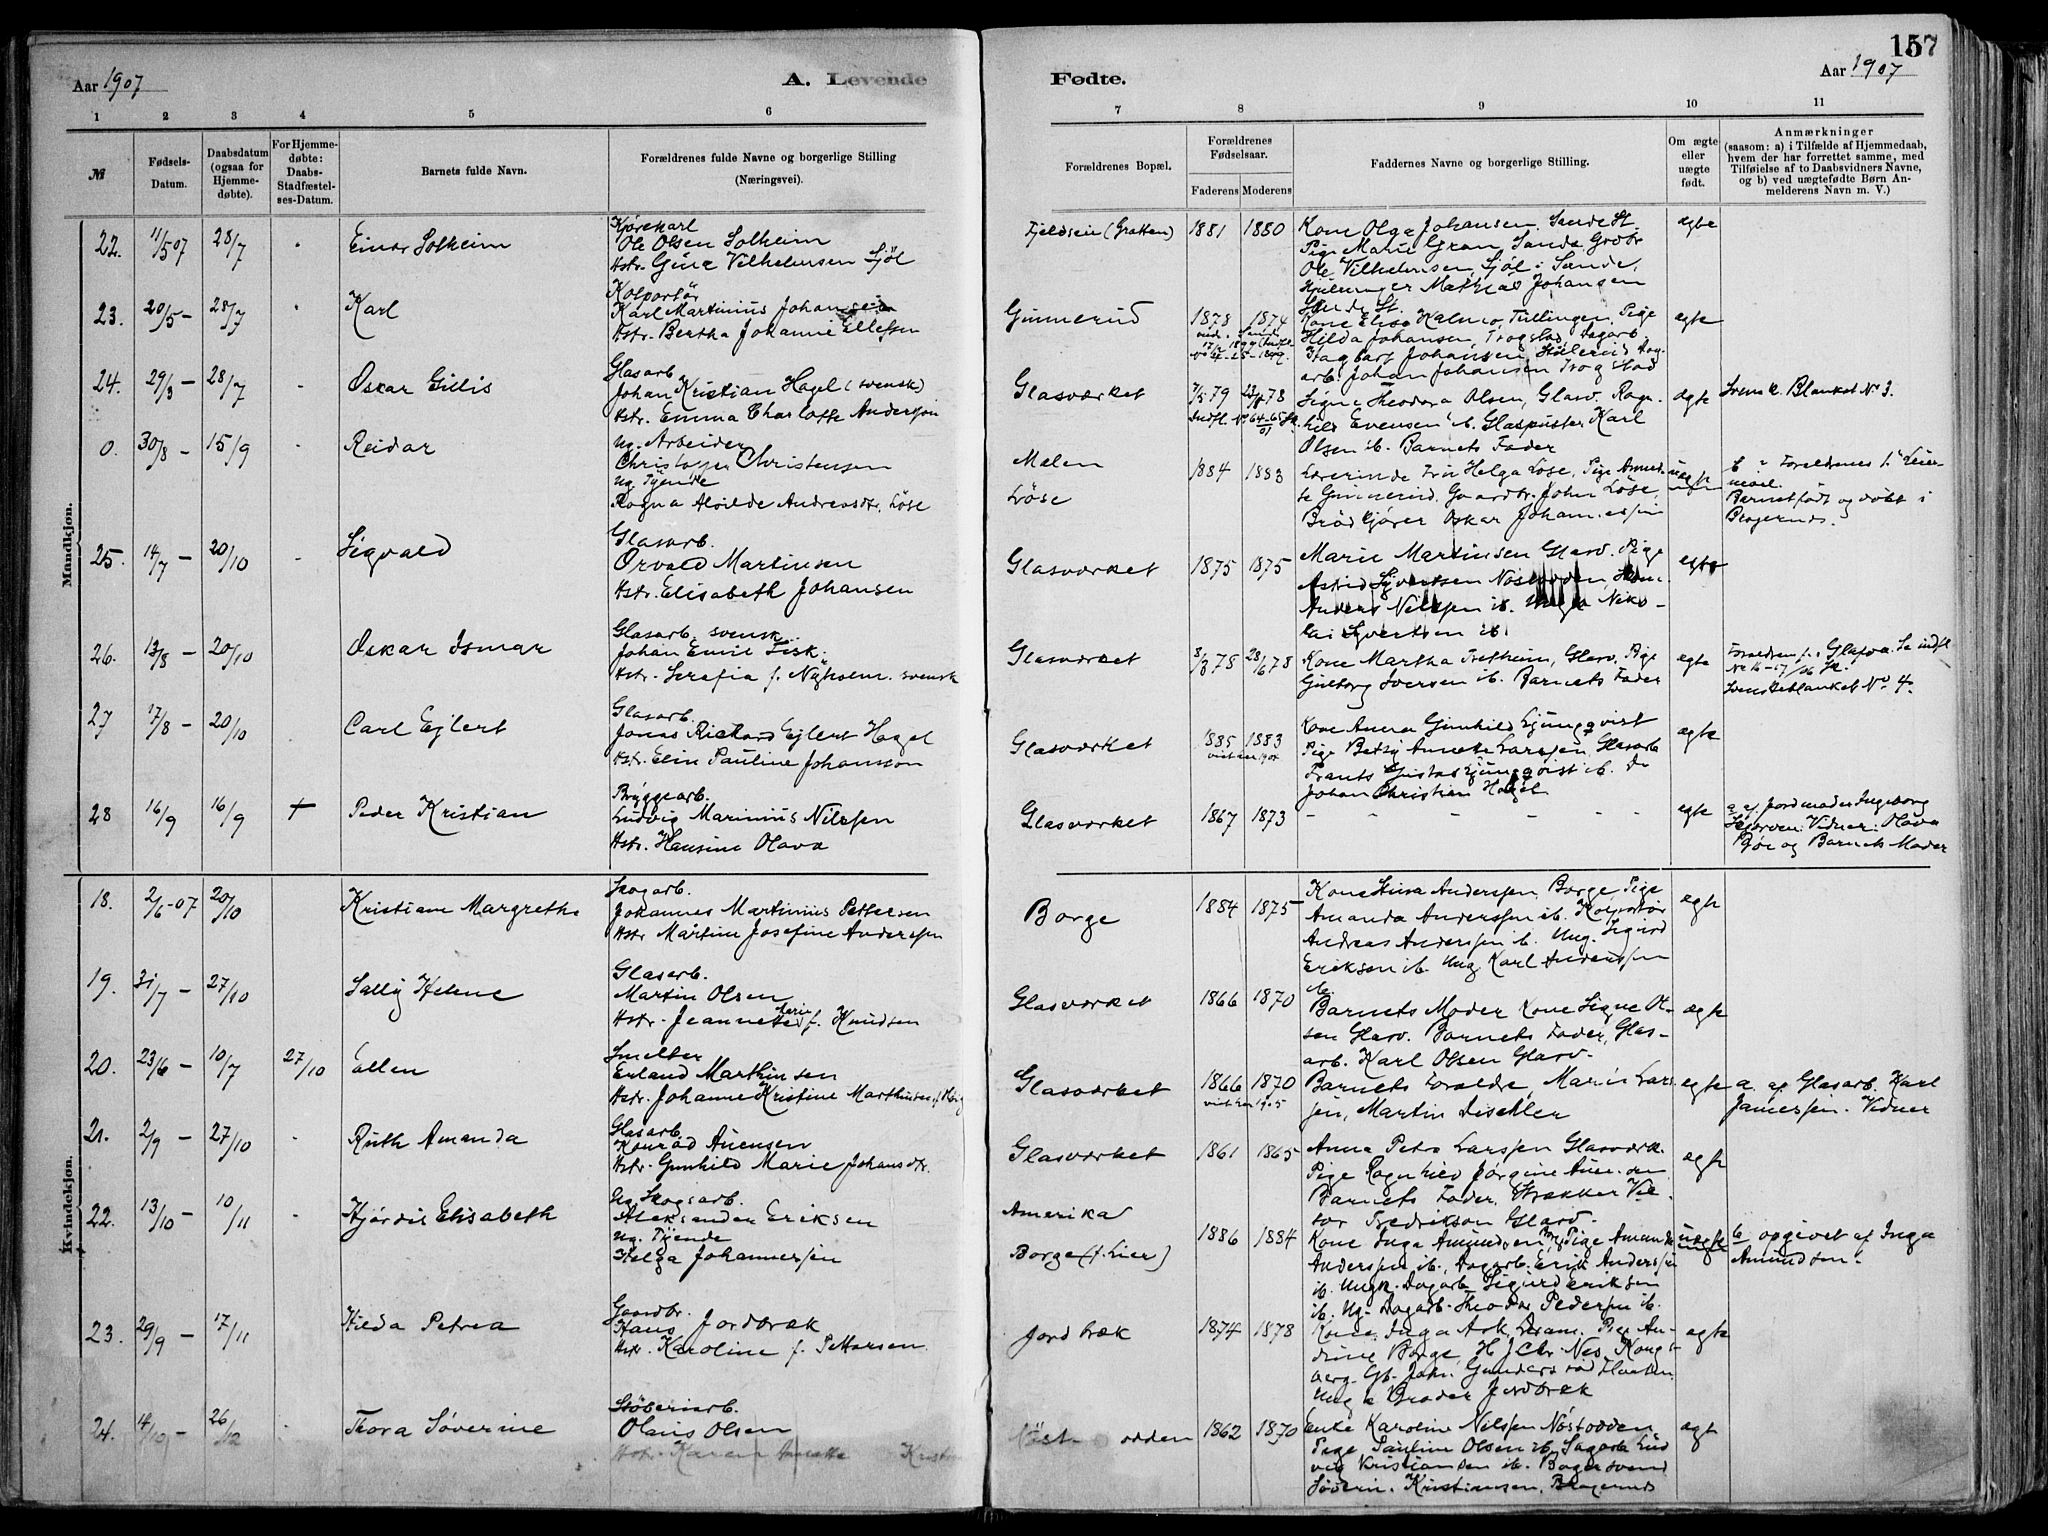 157
Aar 1907
A. Levende
Fødte.
Aar 1907
1 2 3 4 5 6 7 8 9 10 11
№
Fødsels-
Datum.
Daabsdatum
(ogsaa for
Hjemme-
døbte).
For Hjemme-
døbte:
Daabs-
Stadfæstel-
ses-Datum.
Barnets fulde Navn.
Forældrenes fulde Navne og borgerlige Stilling
(Næringsvei).
Forældrenes Bopæl.
Forældrenes
Fødselsaar.
Faderens Moderens
Faddernes Navne og borgerlige Stilling.
Om ægte
eller
uægte
født.
Anmærkninger
(saasom: a) i Tilfælde af Hjemmedaab,
hvem der har forrettet samme, med
Tilføielse af to Daabsvidners Navne,
og b) ved uægtefødte Børn An-
melderens Navn m. V.)
Mandkjøn.
22. 11/5 07 28/7 Einar Solheim
Kjørekarl
Ole Olsen Solheim
Hstr. Gina Vilhelmsen Sjøl
1881 1880 Kone Olga Johansen, Sande St.
Pige Marie Gran, Sande, Grdbr
Ole Vilhelmsen, Sjøl i Sande,
Mathias Johansen
Sande St.
ægte
23. 20/5 – 28/7 Karl
Kolportør
Karl Martinius Johansen
Hstr. Bertha Johanne Ellefsen
Gunnerud 1878 1874
Kone Elise Tillingen, Pige
Hilda Johansen, Trogstad, Dagarb
Dagbart Johansen
arb. Johan Johansen Trogstad
egte
24. 29/3 – 28/7 Oskar Gillis
Glasarb.
Johan Kristian Hagel (svensk)
Hstr. Emma Charlotte Andersson
Glasværket 7/5 79
Signe Theodora Olsen, Glasv. Ragn-
hild Evensen ib. Glaspuster Karl
Olsen ib. Barnets Fader
ægte
Svensk Blanket No 3.
0. 30/8 – 15/9 Reidar
Ug. Arbeider
Christoffer Christensen
Ug. Tjende
Ragna Alvilde Andreasdtr. Løse
Mælen
Løse
1884 1883 Lærerinde Frk Helga Løse, Pige
Gunnerud, Gaardbr. John Løse,
Brødkjører Oskar Johannessen
uægte
Barnet født og døbt i
Bragernes.
25. 14/7 – 20/10 Sigvald
Glasarb.
Orvald Martinsen
Hstr. Elisabeth Johansen
Glasværket 1875 1875
Marie Martinsen Glasv. Pige
Astrid Syvertsen Nøstodden,
Anders Nilssen ib. Niko-
lai Syvertsen ib.
egte
26. 13/8 – 20/10 Oskar Ismar
Glasarb. svensk
Johan Emil Fisk
Hstr. Serafia f. Nyholm. svensk
Glasværket
Kone Martha Tretheim, Glasv. Pige
Gudborg Iversen ib. Barnets Fader
egte
Svenskeblanket No 4.
27 17/8 – 20/10 Carl Ejlert
Glasarb.
Jonas Richard Ejlert Hagel
Hstr. Elin Pauline Johansson
Glasværket 1885 1883
Kone Anna Gunhild Ljungqvist
Pige Betsy Annette Larssen, Glasarb
Frants Gustav Ljungqvist ib. Do
Johan Christian Hagel
ægte
28 16/9 16/9 + Peder Kristian
Bryggearb.
Ludvig Marinius Nilssen
Hstr. Hansine Olava
Glasværket 1867 1873 – – – – – –
egte
a. af Jordmoder Ingeborg
Vidner: Olava
og Barnets Moder
Kvindekjøn.
18. 2/6-07 20/10 Kristiane Margrethe
Skogarb.
Johannes Martinius Pettersen
Hstr. Martine Josefine Anderssen
Borge 1884 1875
Kone Stina Anderssen, Borge, Pige
Amanda Anderssen ib. Kolportør
Andreas Anderssen ib. Ung. Sigurd
Eriksen ib. Ung Karl Anderssen
ib.
egte
19. 31/7 – 27/10 Sally Helene
Glasarb.
Martin Olsen
Hstr. Jeannette Marie f. Knudsen
Glasværket 1866 1870
Barnets Moder Kone Signe Ol-
sen Glasv. Barnets Fader, Glas-
arb. Karl Olsen Glasv.
ægte
20. 23/6 – 10/7 27/10 Ellen
Smelter
Erland Marthinsen
Hstr. Johanne Kristine Marthinsen
Glasværket 1866 1870
Barnets Foraldre, Marie Lars-
sen, Martin Dischler
egte
a. af Glasarb. Karl
Jamessen. Vidner
21. 2/9 – 27/10 Ruth Amanda
Glasarb.
Konrad Auensen
Hstr. Gunhild Marie Johansdtr.
Glasværket 1861 1865
Anna Petra Larssen Glasværk.
Pige Ragnhild Jørgine Auensen
Barnets Fader. Strækker Vic-
tor Fredrikson Glasv.
ægte
22. 13/10 – 10/11 Hjørdis Elisabeth
Ug. Skogsarb.
Aleksander Eriksen
Ug. Tjende
Helga Johannessen
Amerika
Borge (f. Lier)
1886 1884 Kone Inga Amundsen, Pige Amanda
Anderssen ib., Dagarb. Erik Anderssen
ib. Ungk. Dagarb. Sigurd Eriksen
ib. Ug. Dagarb. Theodor Pedersen ib.
uægte
b opgivet af Inga
Amundsen.
23. 29/9 – 17/11 Hilda Petrea
Gaardbr.
Hans Jordbræk
Hstr. Karoline f. Pettersen
Jordbræk 1874 1878
Kone Inga Ask, Pige An-
dine Borge, H J Chr. Nes, Kongs-
berg. Gb. Joh. Gundersrød
Ung a Brader Jordbræk
ægte
24. 14/10 – 26/12 Thora Søverine
Støberiarb.
Olaus Olsen
Hstr. Karen Annette Kristi
Nøstodden 1862 1870
Enke Karoline Nilssen Nøstodden
Pige Pauline Olsen ib. Sagarb Lud-
vig Kristiansen ib. Bagersvend
Søverin Kristiansen, Bragernes
ægt